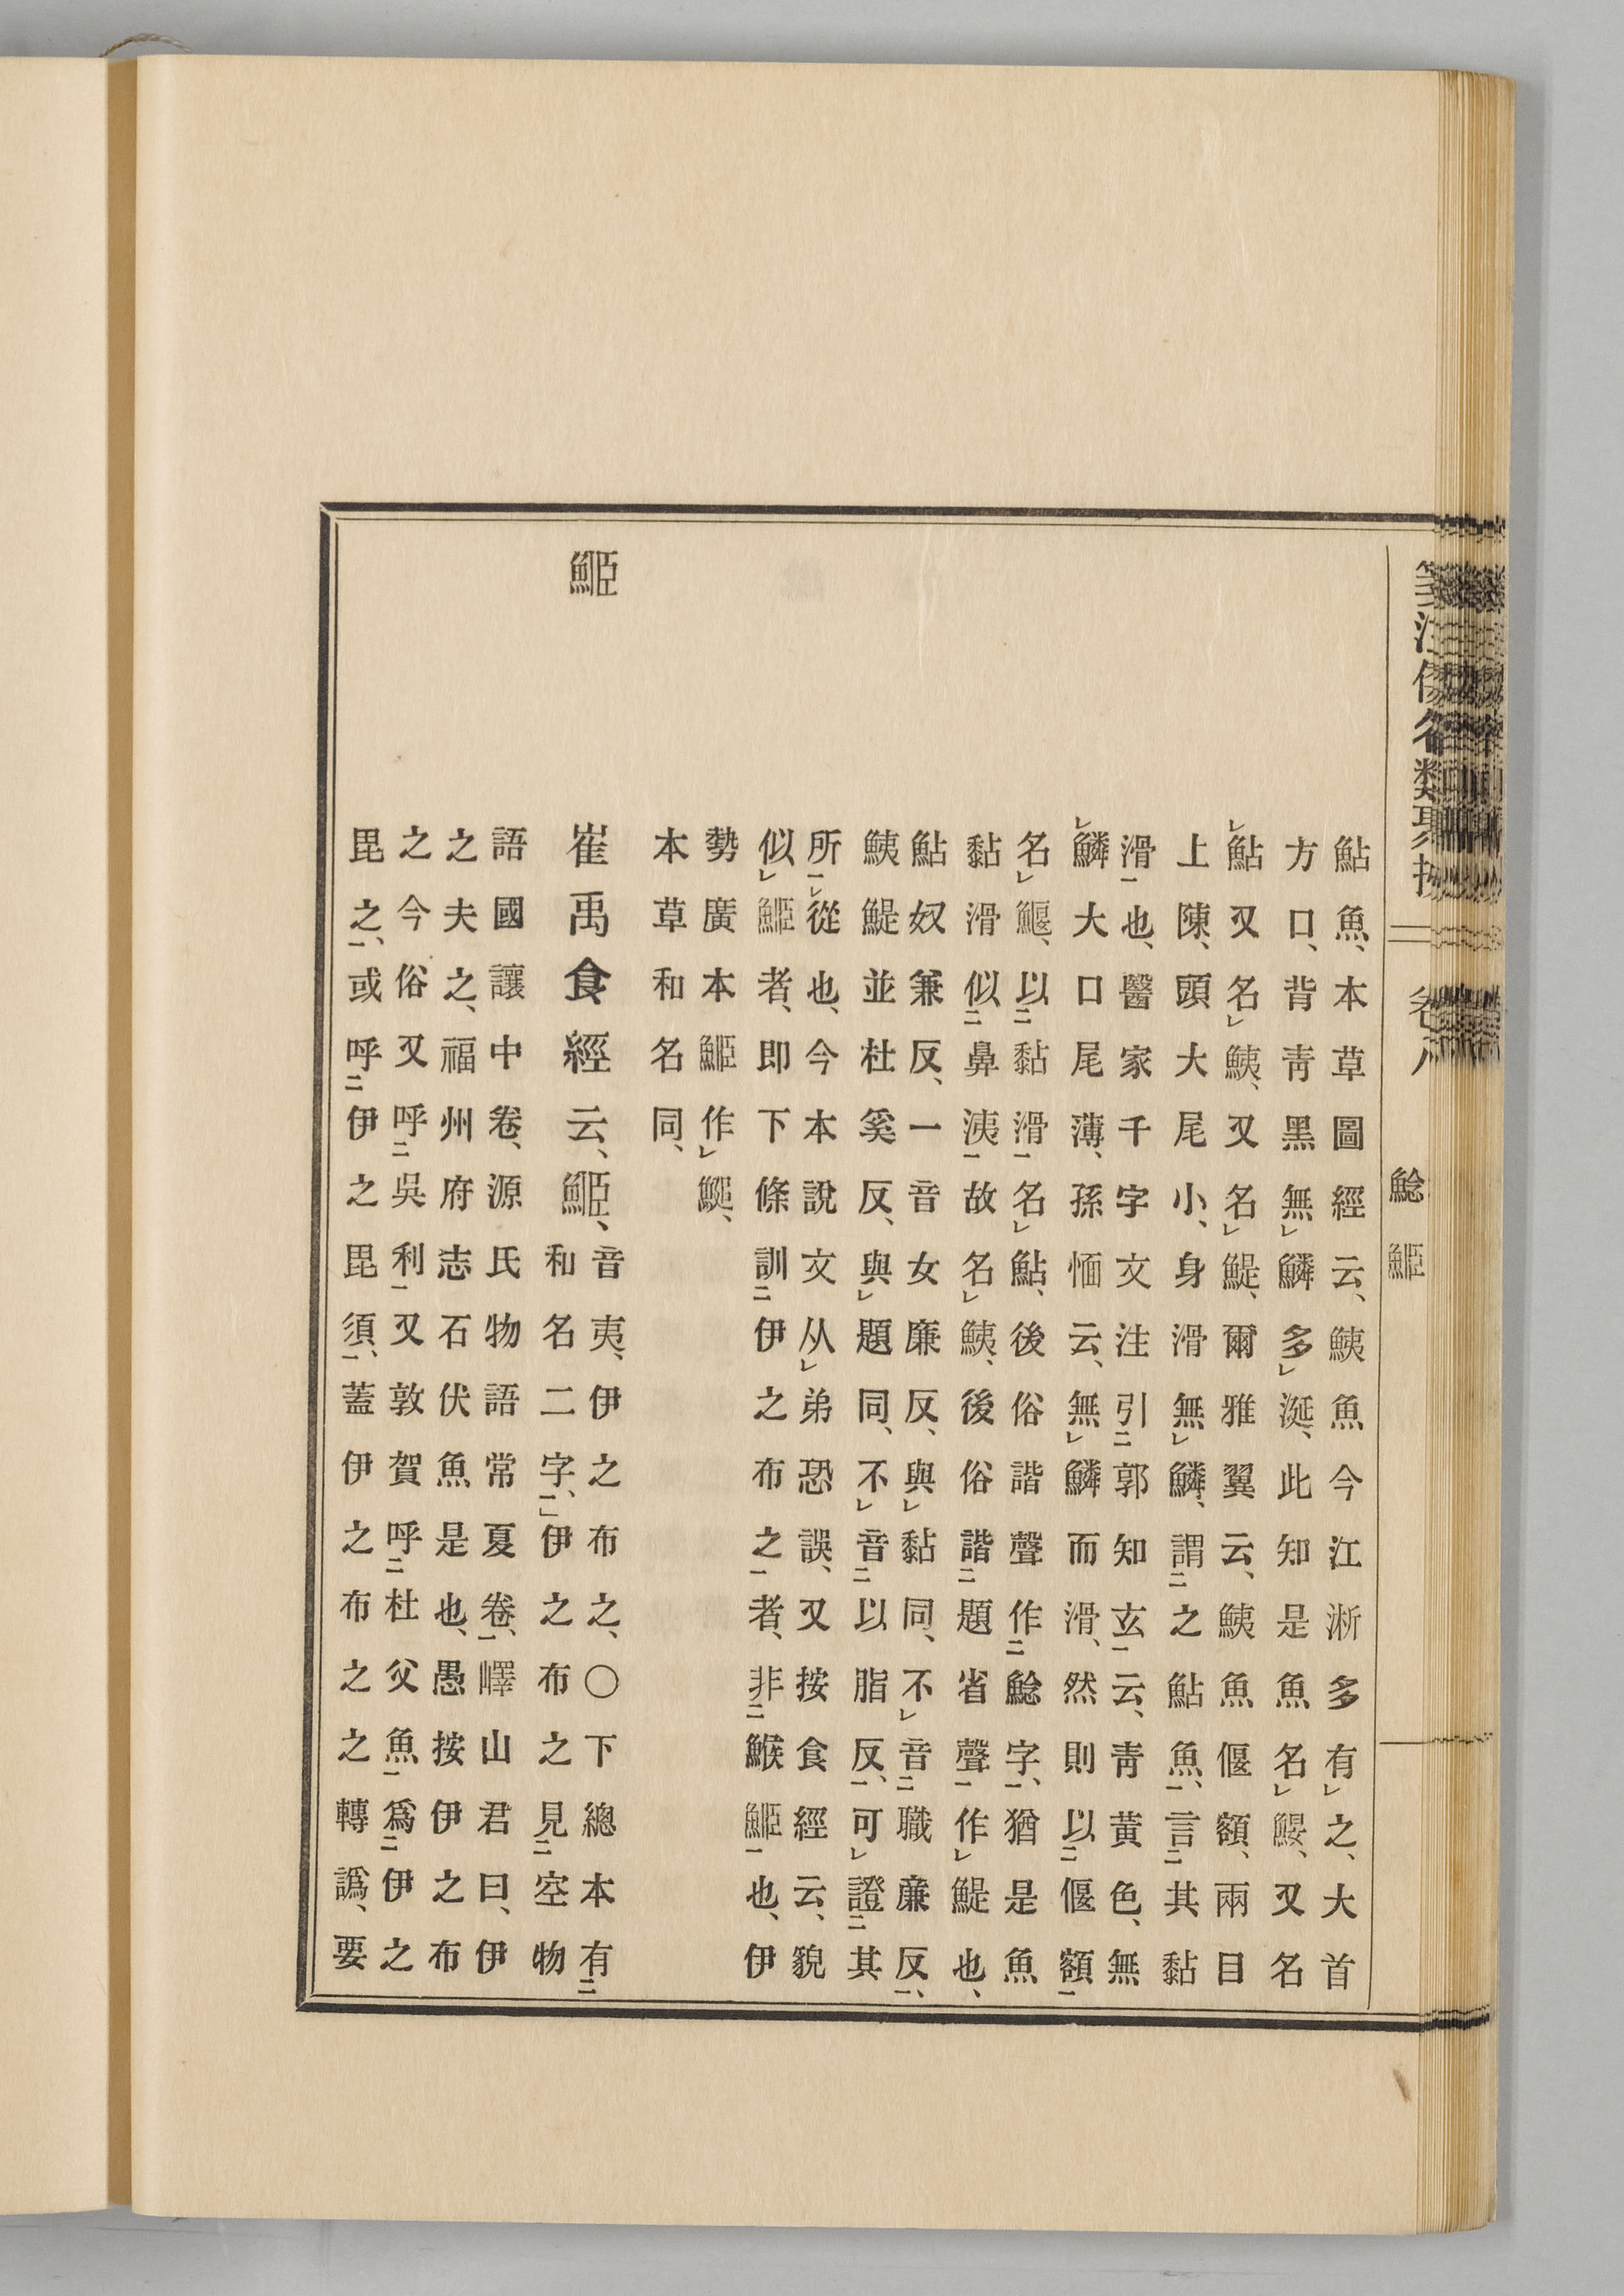 名類 卷八 鯰 䱌
鮎魚、本草圖經云、鮧魚今江淅多有㆑之、大首
方口、背靑黑無㆑鱗多㆑涎、此知是魚名㆑鰋、又名
㆑鮎又名㆑鮧、又名㆑鯷、爾雅翼云、鮧魚偃額、兩目
上陳、頭大尾小、身滑無㆑鱗、謂㆓之鮎魚㆒、言㆓其黏
滑㆒也、醫家千字文注引㆓郭知玄㆒云、靑黃色、無
㆑鱗大口尾薄、孫愐云、無㆑鱗而滑、然則以㆓偃額㆒
名㆑鰋、以㆓黏滑㆒名㆑鮎、後俗諧聲作㆓鯰字㆒、猶是魚
黏滑似㆓鼻洟㆒故名㆑鮧、後俗諧㆓題省聲㆒作㆑鯷也、
鮎奴兼反、一音女廉反、與㆑黏同、不㆑音㆓職廉反㆒、
鮧鯷並杜奚反、與㆑題同、不㆑音㆓以脂反㆒、可㆑證㆓其
所㆒㆑從也、今本說文从㆑弟恐誤、又按食經云、貌
似㆑䱌者、即下條訓㆓伊之布之㆒者、非㆓鯸䱌㆒也、伊
勢廣本䱌作㆑、
本草和名同、
䱌
崔禹食經云、䱌、
音夷、伊之布之、〇下總本有㆓
和名二字㆒、伊之布之見㆓空物
語國讓中卷、源氏物語常夏卷㆒、嶧山君曰、伊
之夫之、福州府志石伏魚是也、愚按伊之布
之今俗又呼㆓吳利㆒又敦賀呼㆓杜父魚㆒爲㆓伊之
毘之㆒、或呼㆓伊之毘須㆒、蓋伊之布之之轉譌、要